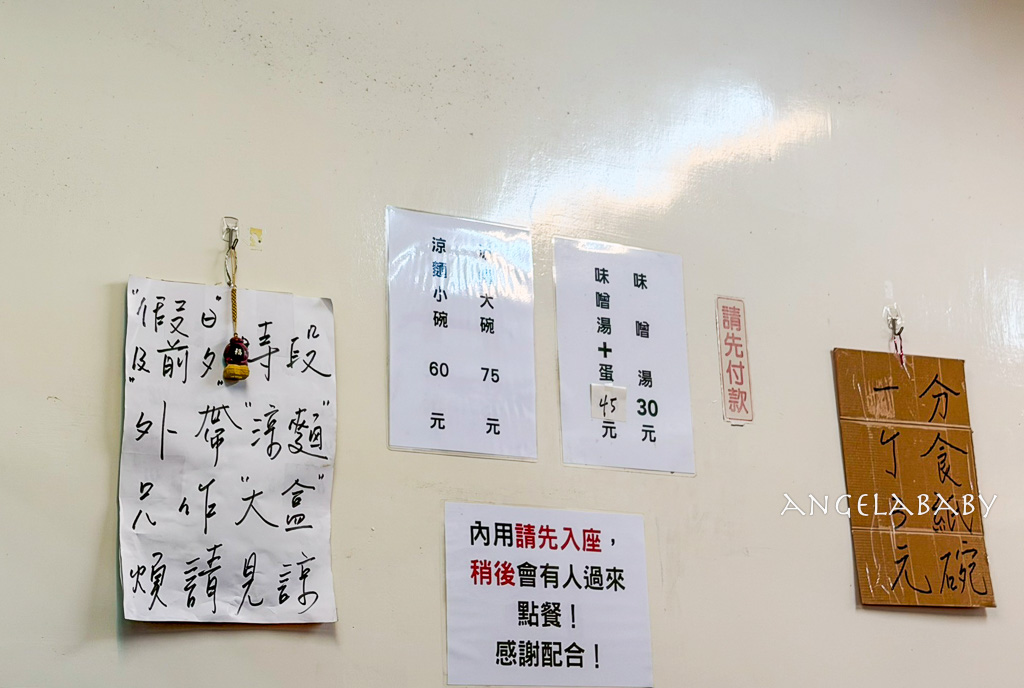 "假日"
及"前夕"時段
外帶"涼麵"
只作"大盒"
煩請見諒
涼麵大碗 75 元
涼麵小碗 60 元
味噌湯 30 元
味噌湯+蛋 45 元
請先付款
內用請先入座，
稍後會有人過來
點餐！
感謝配合！
分食紙碗
一个3元
ANGELABABY